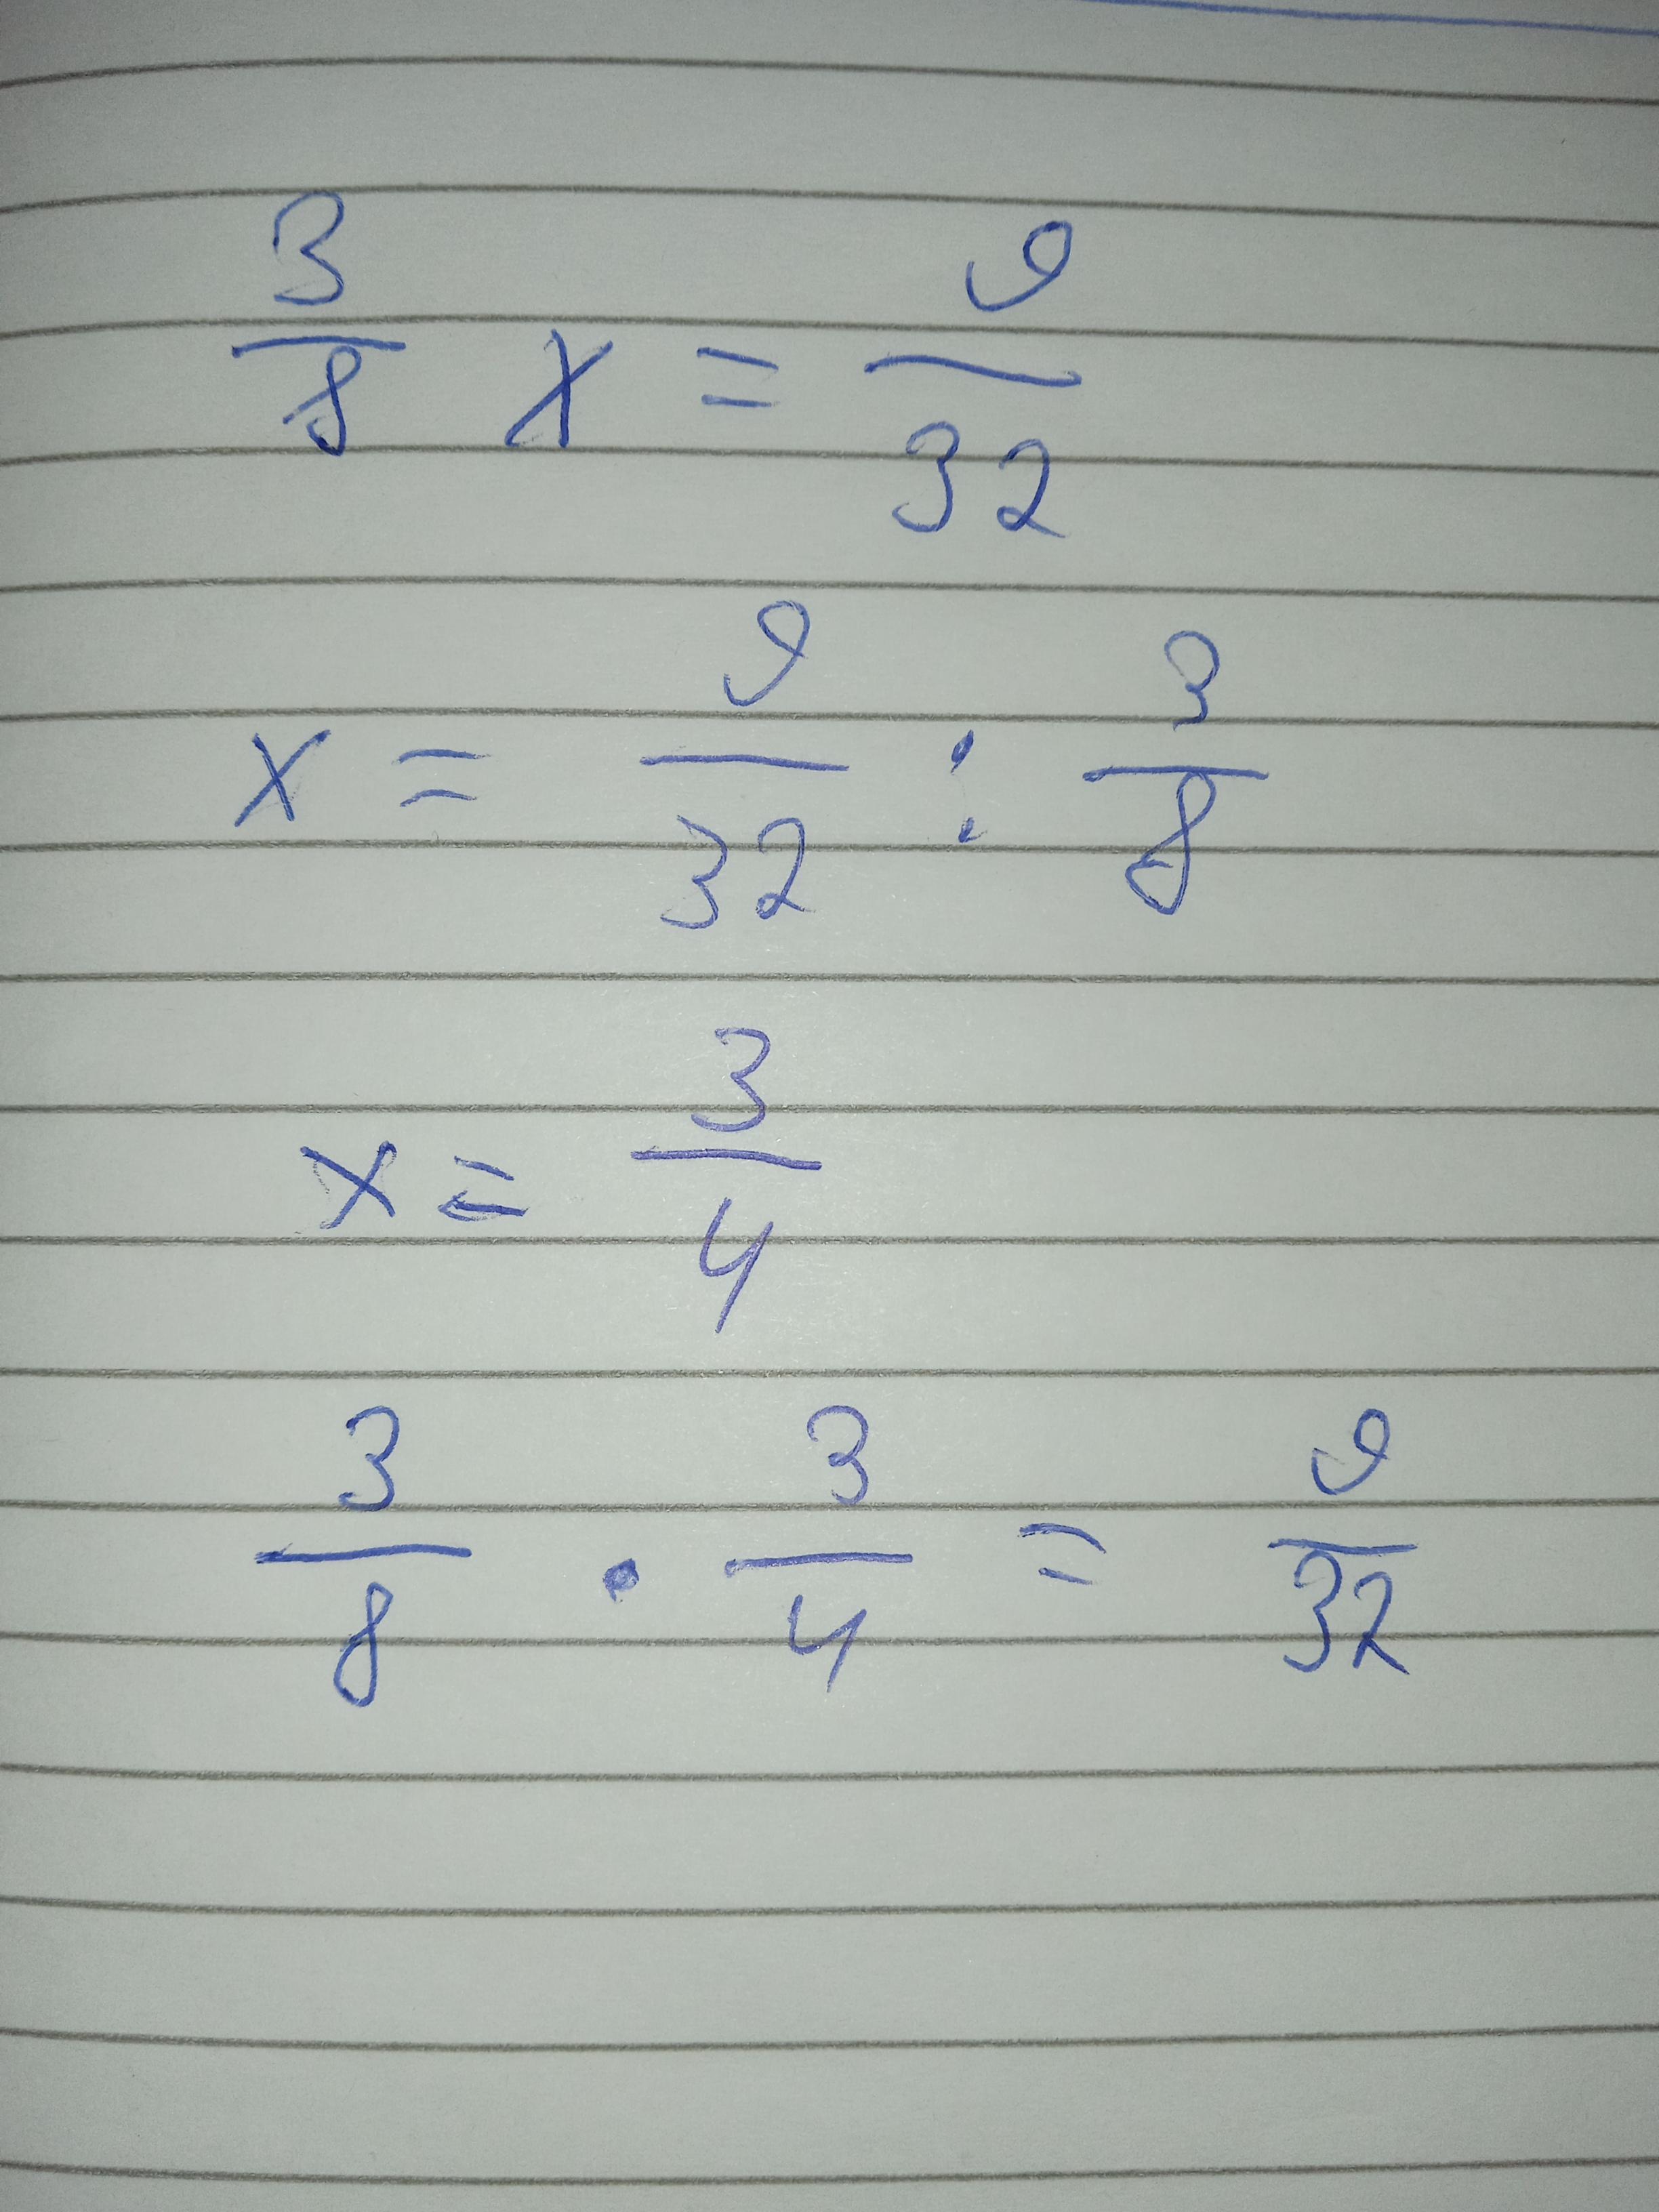 3/8 x = 9/32
x = 9/32 : 3/8
x = 3/4
3/8 · 3/4 = 9/32